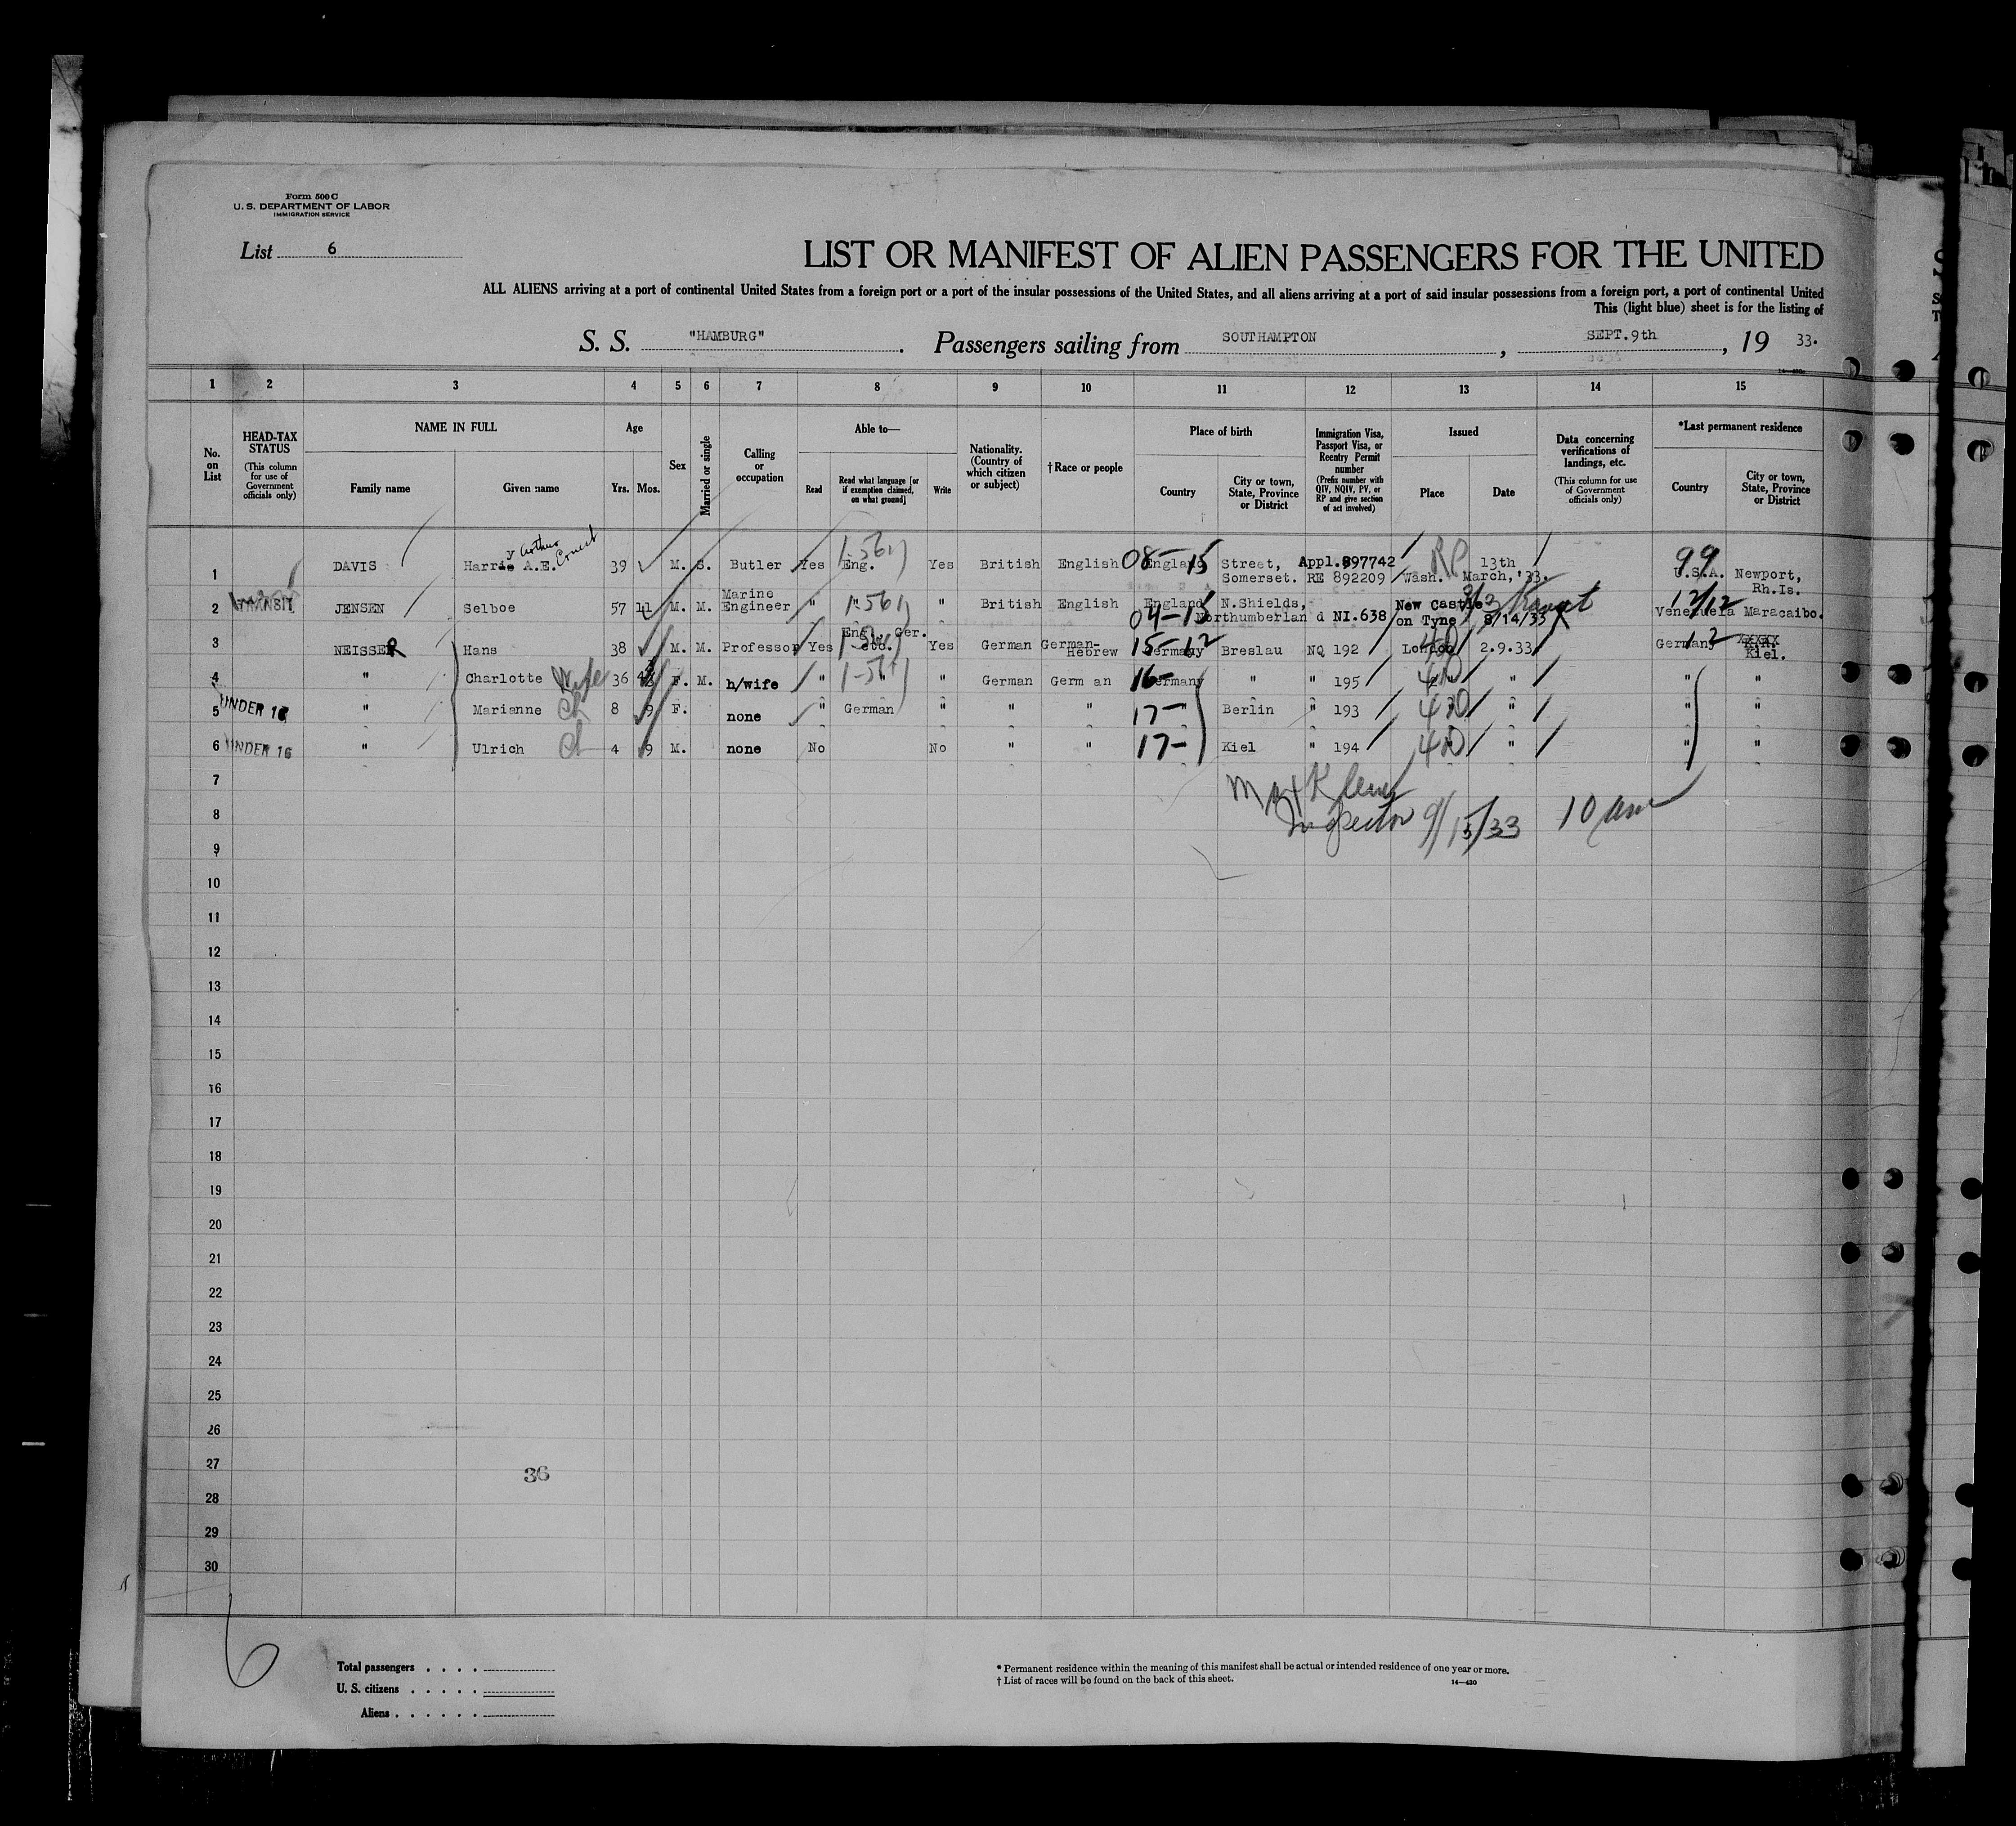 Form 500 C
U. S. DEPARTMENT OF LABOR
IMMIGRATION SERVICE
List 6
LIST OR MANIFEST OF ALIEN PASSENGERS FOR THE UNITED
ALL ALIENS arriving at a port of continental United States from a foreign port or a port of the insular possessions of the United States, and all aliens arriving at a port of said insular possessions from a foreign port, a port of continental United
This (light blue) sheet is for the listing of
S. S. "HAMBURG". Passengers sailing from SOUTHAMPTON, SEPT.9th, 19 33.
1 2 3 4 5 6 7 8 9 10 11 12 13 14 15
No. on List
HEAD-TAX STATUS (This column for use of Government officials only)
NAME IN FULL
Family name Given name
Age
Yrs. Mos.
Sex
Married or single
Calling or occupation
Able to—
Read Read what language [or if exemption claimed, on what ground] Write
Nationality. (Country of which citizen or subject)
†Race or people
Place of birth
Country City or town, State, Province or District
Immigration Visa, Passport Visa, or Reentry Permit number (Prefix number with QIV, NQIV, PV, or RP and give section of act involved)
Issued
Place Date
Data concerning verifications of landings, etc. (This column for use of Government officials only)
*Last permanent residence
Country City or town, State, Province or District
1 DAVIS Harrie A.E. y Arthur Ernest 39 M. S. Butler Yes Eng. 1-561 Yes British English England 08-15 Street, Somerset. Appl.897742 RE 892209 Wash. RP 13th March,'33. 99 U.S.A. Newport, Rh.Is.
2 TRANSIT JENSEN Selboe 57 11 M. M. Marine Engineer " " 1-561 " British English England 04-15 N.Shields, Northumberlan d NI.638 New Castle on Tyne 8/14/33 12/12 Venezuela Maracaibo.
3 NEISSER Hans 38 M. M. Professor Yes Engl. Ger. etc. Yes German German-Hebrew 15-12 Germany Breslau NQ 192 London 2.9.33 Germany 12 Kiel.
4 " Charlotte Wife 36 F. M. h/wife " " 1-561 " German Germ an 16- Germany " " 195 " " " "
5 UNDER 16 " Marianne Ch 8 9 F. none " German " " " 17- " Berlin " 193 " " " "
6 UNDER 16 " Ulrich Ch 4 9 M. none No No " " 17- " Kiel " 194 " " " "
7
Max Klein
8
Inspector 9/15/33 10 am
9
10
11
12
13
14
15
16
17
18
19
20
21
22
23
24
25
26
27
36
28
29
30
6
Total passengers
U. S. citizens
Aliens
* Permanent residence within the meaning of this manifest shall be actual or intended residence of one year or more.
† List of races will be found on the back of this sheet.
14—430